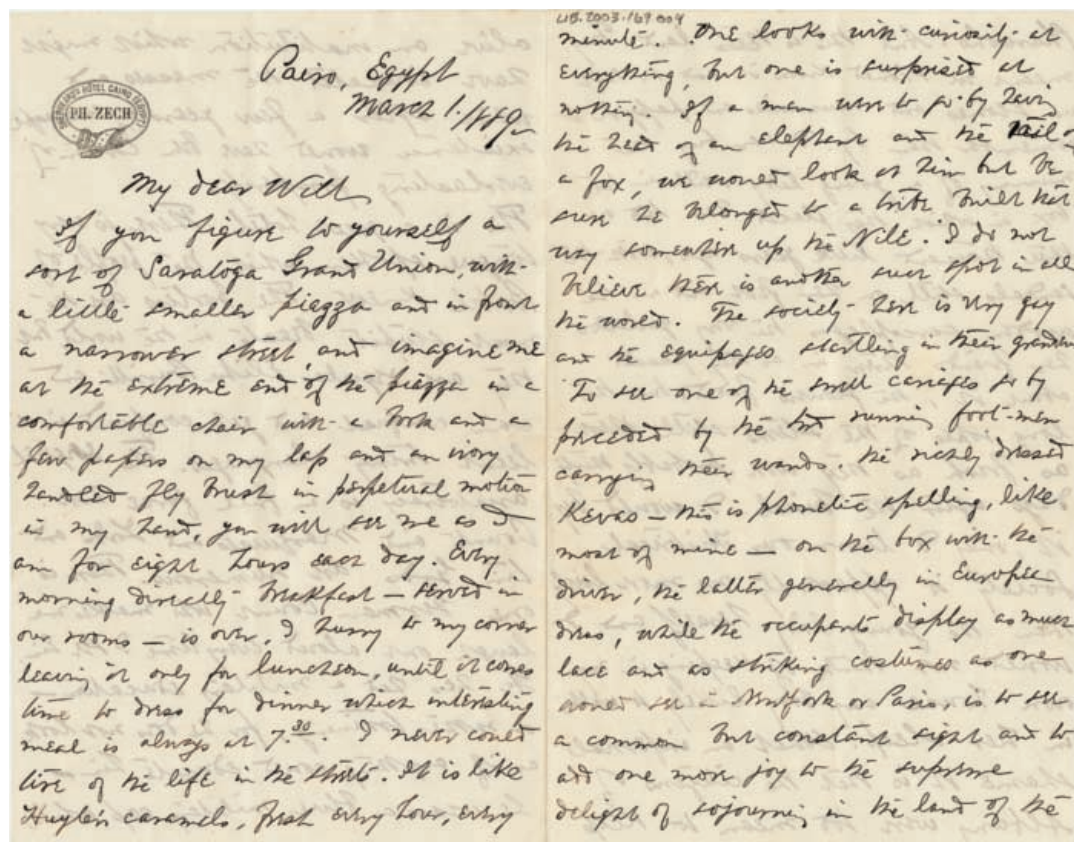 Cairo, Egypt
March 1. 1889
SHEPHEARD'S HOTEL CAIRO EGYPT
PH. ZECH
My dear Will
If you figure to yourself a
sort of Saratoga Grand Union, with
a little smaller piazza and in front
a narrower street, and imagine me
at the extreme end of the piazza in a
comfortable chair with a book and a
few papers on my lap and an ivory
handled fly brush in perpetual motion
in my hand, you will see me as I
am for eight hours each day. Every
morning directly breakfast — served in
our rooms — is over, I hurry to my corner
leaving it only for luncheon, until it comes
time to dress for dinner which interesting
meal is always at 7.30. I never could
tire of the life in the streets. It is like
Huyler's caramels, fresh every hour, every
LIB.2003.169.004
minute. One looks with curiosity at
everything, but one is surprised at
nothing. If a man were to go by having
the head of an elephant and the tail of
a fox, we would look at him but be
sure he belonged to a tribe built that
way somewhere up the Nile. I do not
believe there is another such spot in all
the world. The society here is very gay
and the equipages startling in their grandeur
To see one of the small carriages go by
preceded by the two running foot-men
carrying their wands. the richly dressed
Kevas — this is phonetic spelling, like
most of mine — on the box with the
driver, the latter generally in European
dress, while the occupants display as much
lace and as striking costumes as one
would see in New York or Paris, is to see
a common but constant sight and to
add one more joy to the supreme
delight of sojourning in the land of the